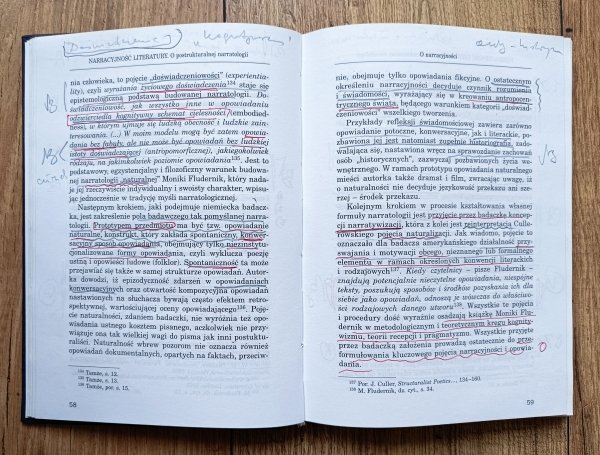 Doświadczenie
NARRACYJNOŚĆ LITERATURY. O postrukturalnej narratologii
nia człowieka, to pojęcie „doświadczeniowości” (experientia-
lity), czyli wyrażania życiowego doświadczenia134 staje się
epistemologiczną podstawą budowanej narratologii. Do-
świadczeniowość, jak wszystko inne w opowiadaniu
odzwierciedla kognitywny schemat cielesności (embodied-
ness), w którym ujmuje się ludzką obecność i ludzkie zain-
teresowania. (...) W moim modelu mogą być zatem opowia-
dania bez fabuły, ale nie może być opowiadań bez ludzkiej
istoty doświadczającej (antropomorficznej), jakiegokolwiek
rodzaju, na jakimkolwiek poziomie opowiadania135. Jest to
podstawowy, egzystencjalny i filozoficzny warunek budowa-
nej narratologii „naturalnej” Moniki Fludernik, który nada-
je jej rzeczywiście indywidualny i swoisty charakter, wpisu-
jąc jednocześnie w tradycję myśli narratologicznej.
Następnym krokiem, jaki podejmuje niemiecka badacz-
ka, jest zakreślenie pola badawczego tak pomyślanej narra-
tologii. Prototypem przedmiotu ma być tzw. opowiadanie
naturalne, konstrukt, który zakłada spontaniczny, konwer-
sacyjny sposób opowiadania, obejmujący tylko niezinstytu-
cjonalizowane formy opowiadania, czyli wyklucza poezję
ustną i opowieści ludowe (folklor). Spontaniczność ta może
przejawiać się także w samej strukturze opowiadań. Autor-
ka dowodzi, iż epizodyczność zdarzeń w opowiadaniach
konwersacyjnych oraz otwartość kompozycyjna opowiadań
nastawionych na słuchacza bywają często efektem retro-
spektywnej, wartościującej oceny opowiadającego136. Poję-
cie naturalności, zdaniem badaczki, nie wyróżnia też opo-
wiadania ustnego kosztem pisanego, aczkolwiek nie przy-
wiązuje ona tak wielkiej wagi do pisma jak inni postuktu-
raliści. Naturalność wbrew pozorom nie oznacza również
opowiadań dokumentalnych, opartych na faktach, przeciw-
134 Tamże, s. 12.
135 Tamże, s. 13.
136 Tamże, por. s. 15.
58
O narracyjności
nie, obejmuje tylko opowiadania fikcyjne. O ostatecznym
określeniu narracyjności decyduje czynnik rozumienia
i świadomości, wyrażający się w kreowaniu antropocen-
trycznego świata, będącego warunkiem kategorii „doświad-
czeniowości” wszelkiego tworzenia.
Przykłady refleksji świadomościowej zawiera zarówno
opowiadanie potoczne, konwersacyjne, jak i literackie, po-
zbawiona jej jest natomiast zupełnie historiografia, zado-
walająca się, nastawiona wręcz na sprawozdanie zachowań
osób „historycznych”, zazwyczaj pozbawionych życia we-
wnętrznego. W ramach prototypu opowiadania naturalnego
mieści autorka także dramat i film, zwracając uwagę, iż
o naturalności nie decyduje językowość przekazu ani sze-
rzej – środek przekazu.
Kolejnym krokiem w procesie kształtowania własnej
formuły narratologii jest przyjęcie przez badaczkę koncep-
cji narratywizacji, która z kolei jest reinterpretacją Culle-
rowskiego pojęcia naturalizacji. Jak wiadomo, pojęcie to
oznaczało dla badacza amerykańskiego działalność przy-
swajania i motywacji obcego, nieznanego lub formalnego
elementu w ramach określonych konwencji literackich
i rodzajowych137. Kiedy czytelnicy – pisze Fludernik –
znajdują potencjalnie nieczytelne opowiadania, niespójne
teksty, poszukują sposobów i środków pozyskania ich dla
siebie jako opowiadań, odnoszą je wówczas do właściwo-
ści rodzajowych danego utworu138. Wszystkie te pojęcia
i procedury dość wyraźnie osadzają książkę Moniki Flu-
dernik w metodologicznym i teoretycznym kręgu kognity-
wizmu, teorii recepcji i pragmatyzmu. Wszystkie przyjęte
przez badaczkę założenia prowadzą ostatecznie do prze-
formułowania kluczowego pojęcia narracyjności i opowia-
dania.
137 Por. J. Culler, Structuralist Poetics..., 134–160.
138 M. Fludernik, dz. cyt., s. 34.
59